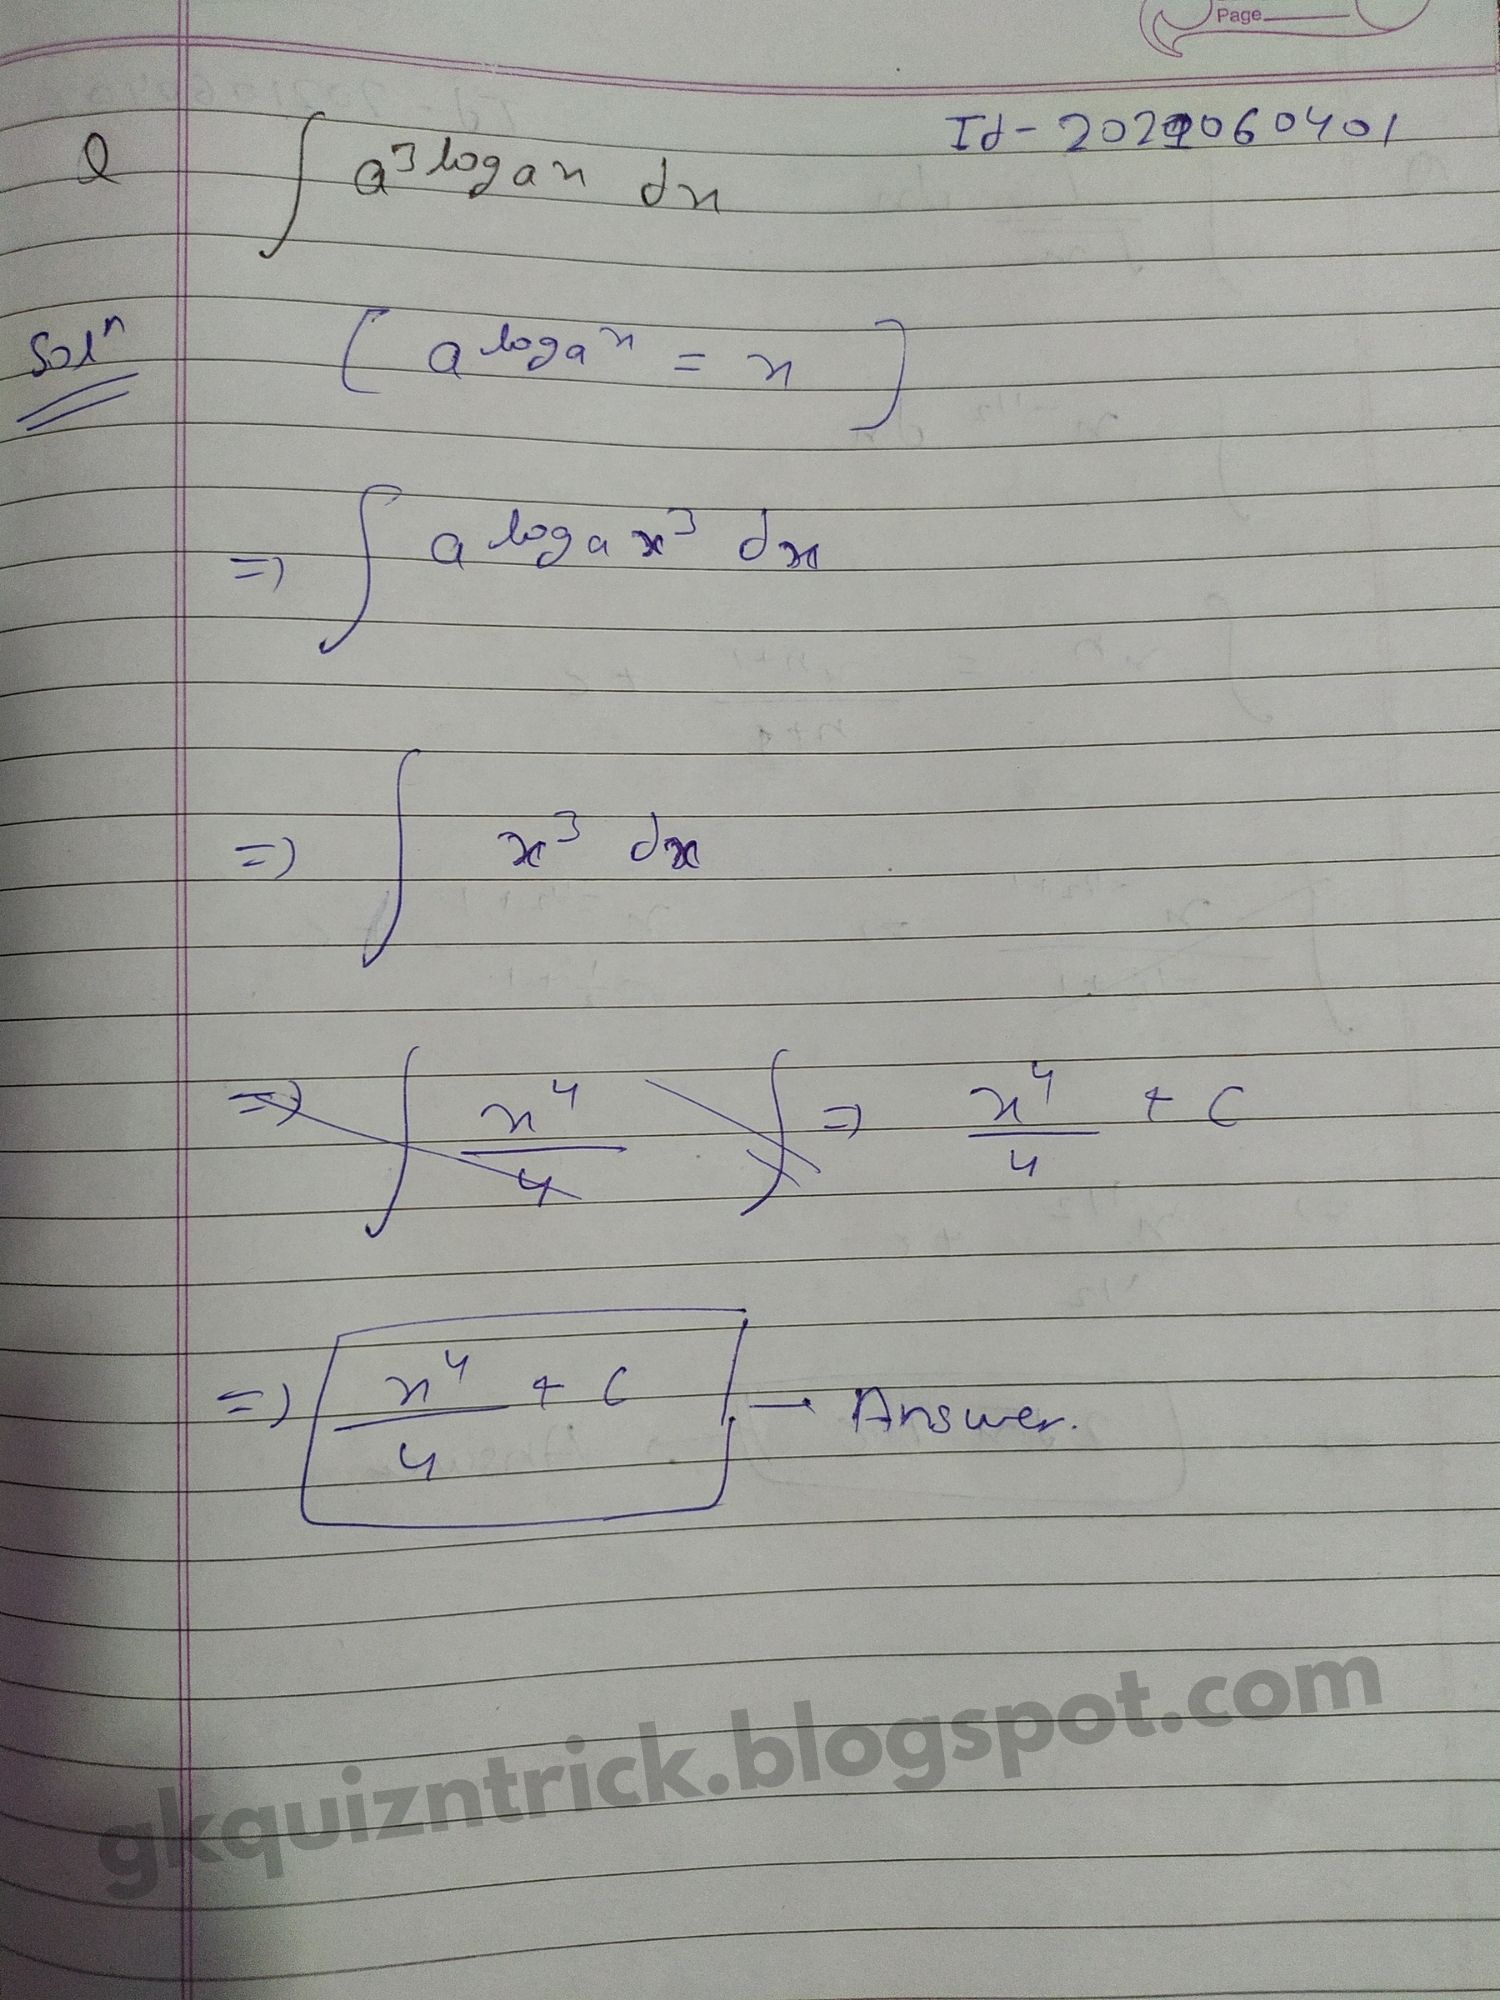 Page
Id-2021060401
Q ∫ a^3 log a x dx
Sol^n [ a^log a^x = x ]
=) ∫ a^log a x^3 dx
=) ∫ x^3 dx
=) ∫ x^4/4 ∫ =) x^4/4 + C
=) x^4/4 + C → Answer.
gkquizntrick.blogspot.com